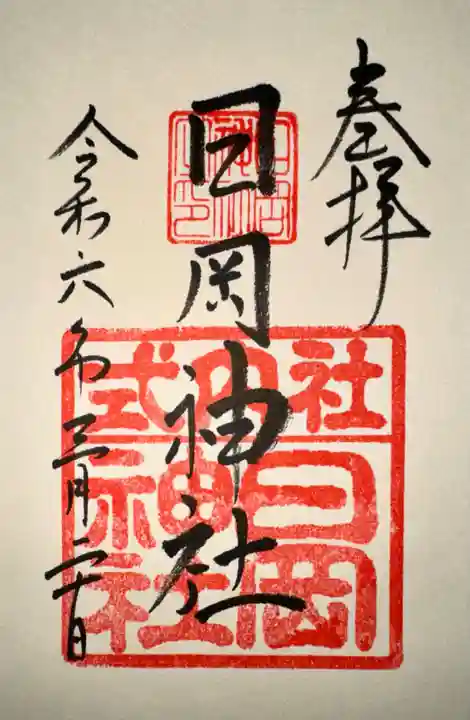 奉拝
日岡神社
令和六年三月二十日
社内式
日岡
神社